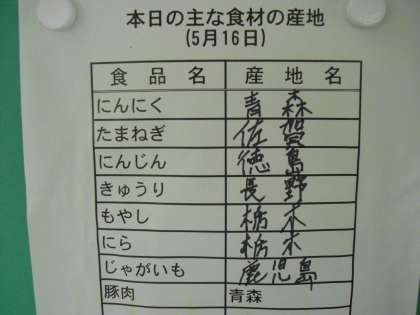 本日の主な食材の産地
(5月16日)
食品名 産地名
にんにく 青森
たまねぎ 佐賀
にんじん 徳島
きゅうり 長野
もやし 栃木
にら 栃木
じゃがいも 鹿児島
豚肉 青森